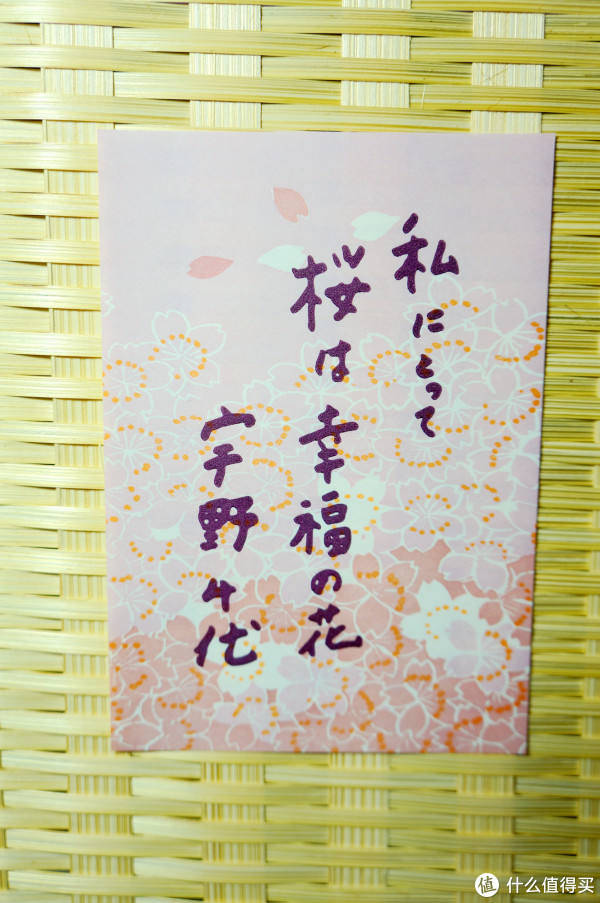 私にとって
桜は幸福の花
宇野千代
值 什么值得买